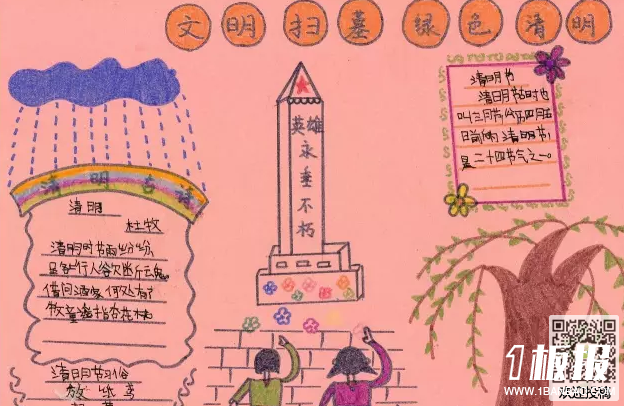 文明扫墓 绿色清明
英雄永垂不朽
清明古诗
清明
杜牧
清明时节雨纷纷
路上行人欲断魂
借问酒家何处有
牧童遥指杏花村
清明节习俗
放纸鸢
清明节
清明节古时也
叫三月节
日前后清明节
是二十四节气之一。
1板报
WWW.1BANBAO.COM
欢迎投稿